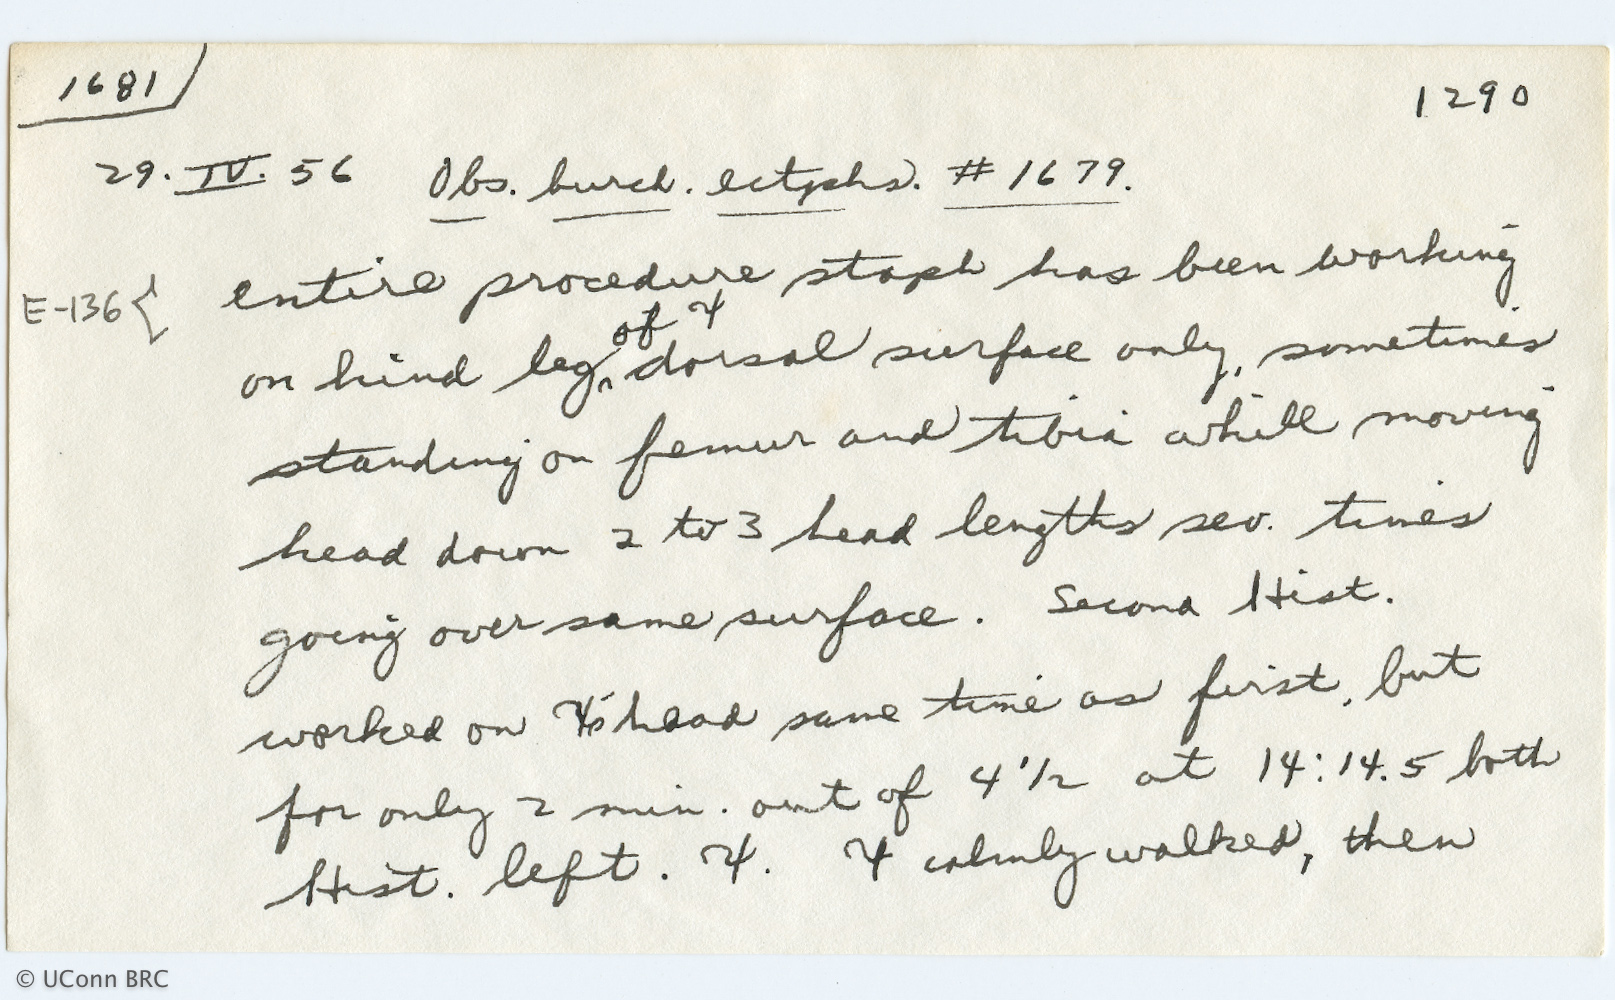 1681
1290
29. IV. 56 Obs. burch. ectphs. #1679.
E-136{ entire procedure staph has been working
on hind leg, of ♃ dorsal surface only, sometimes
standing on femur and tibia while moving
head down 2 to 3 head lengths sev. times
going over same surface. Second Hist.
worked on ♃'s head same time as first, but
for only 2 min. out of 4 1/2 at 14:14.5 both
Hist. left. ♃. ♃ calmly walked, then
© UConn BRC